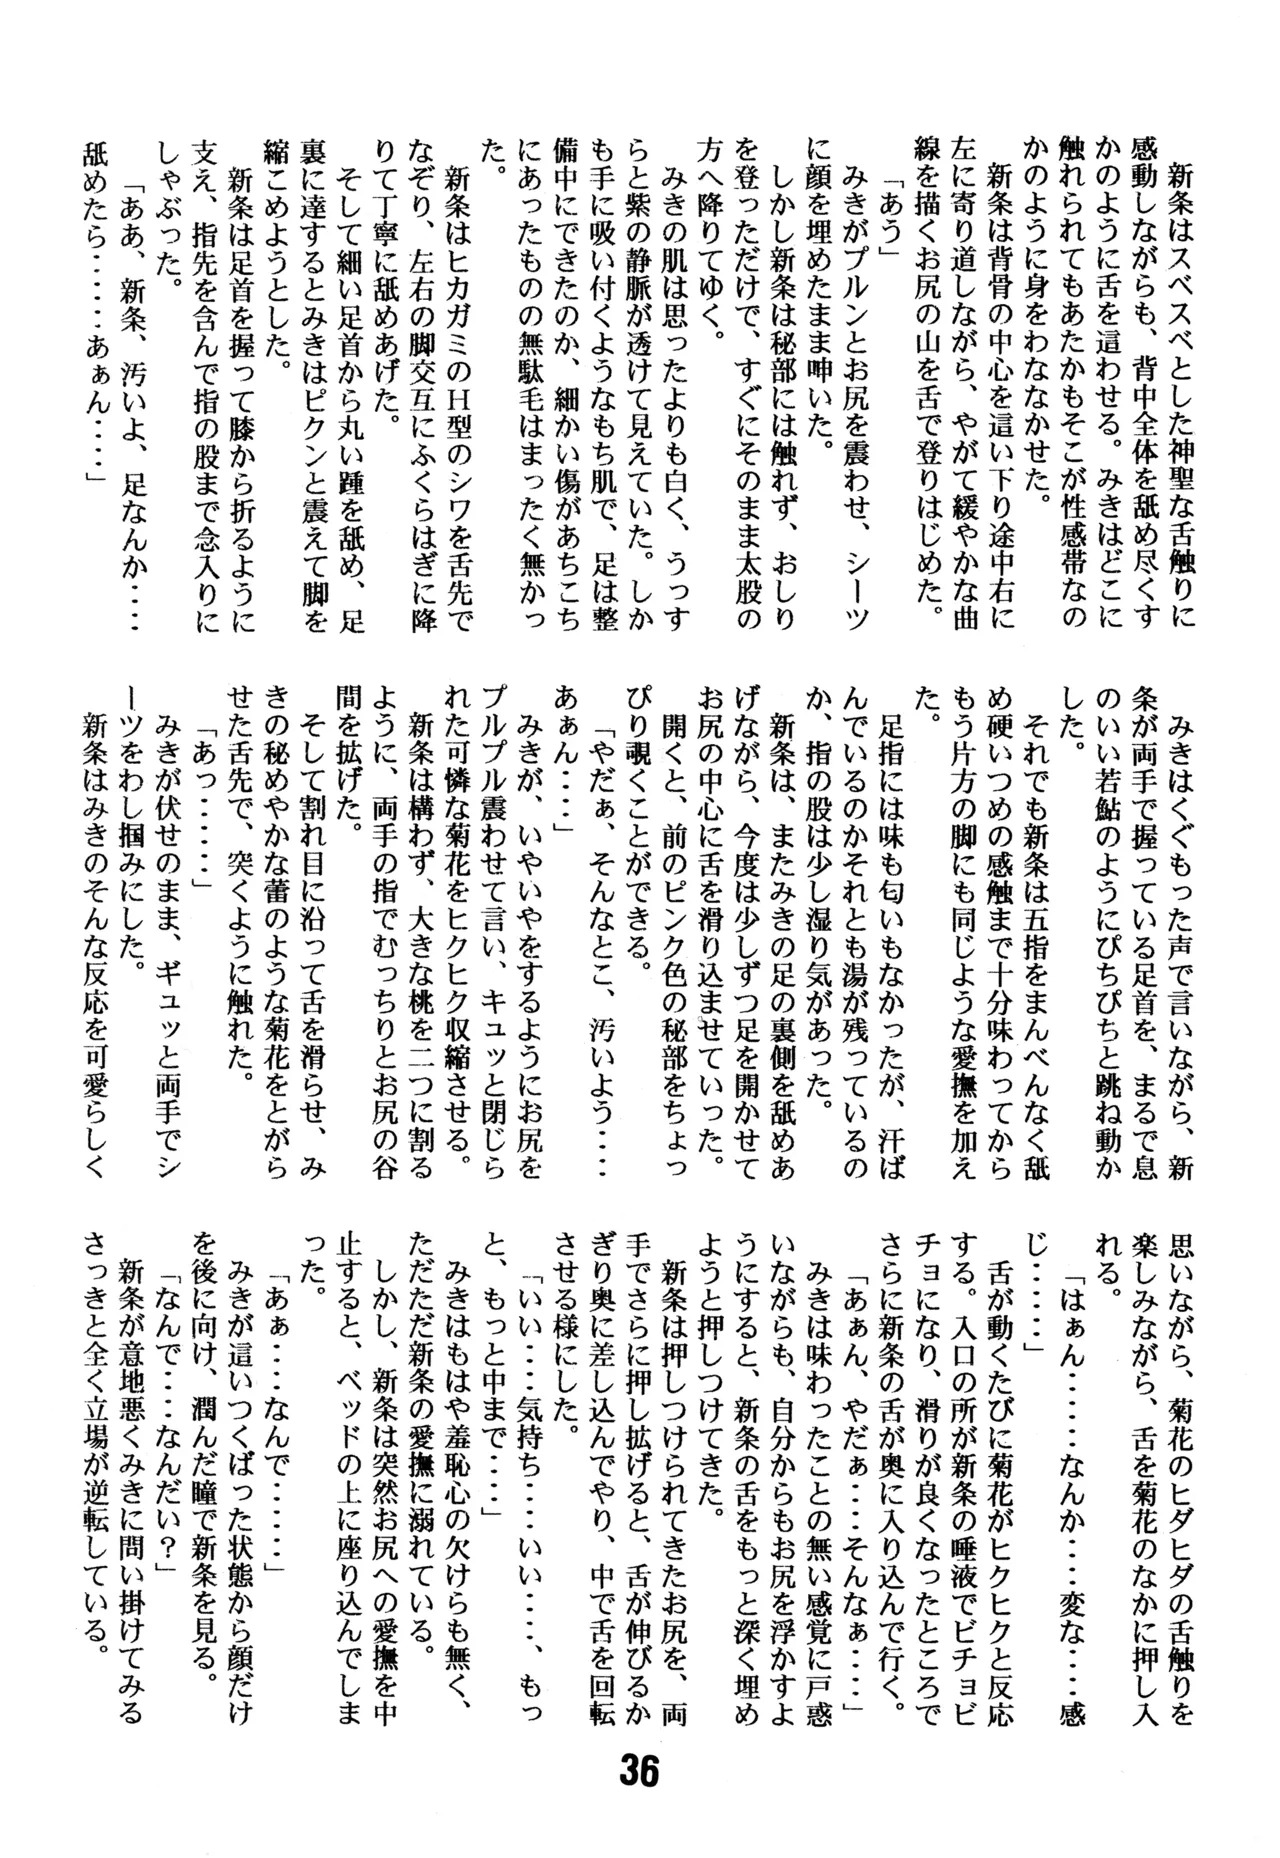 新条はスベスベとした神聖な舌触りに
感動しながらも、背中全体を舐め尽くす
かのように舌を這わせる。みきはどこに
触れられてもあたかもそこが性感帯なの
かのように身をわななかせた。
新条は背骨の中心を這い下り途中右に
左に寄り道しながら、やがて緩やかな曲
線を描くお尻の山を舌で登りはじめた。
「あう」
みきがプルンとお尻を震わせ、シーツ
に顔を埋めたまま呻いた。
しかし新条は秘部には触れず、おしり
を登っただけで、すぐにそのまま太股の
方へ降りてゆく。
みきの肌は思ったよりも白く、うっす
らと紫の静脈が透けて見えていた。しか
も手に吸い付くようなもち肌で、足は整
備中にできたのか、細かい傷があちこち
にあったものの無駄毛はまったく無かっ
た。
新条はヒカガミのH型のシワを舌先で
なぞり、左右の脚交互にふくらはぎに降
りて丁寧に舐めあげた。
そして細い足首から丸い踵を舐め、足
裏に達するとみきはピクンと震えて脚を
縮こめようとした。
新条は足首を握って膝から折るように
支え、指先を含んで指の股まで念入りに
しゃぶった。
「ああ、新条、汚いよ、足なんか‥‥
舐めたら‥‥‥あぁん‥‥」
みきはくぐもった声で言いながら、新
条が両手で握っている足首を、まるで息
のいい若鮎のようにぴちぴちと跳ね動か
した。
それでも新条は五指をまんべんなく舐
め硬いつめの感触まで十分味わってから
もう片方の脚にも同じような愛撫を加え
た。
足指には味も匂いもなかったが、汗ば
んでいるのかそれとも湯が残っているの
か、指の股は少し湿り気があった。
新条は、またみきの足の裏側を舐めあ
げながら、今度は少しずつ足を開かせて
お尻の中心に舌を滑り込ませていった。
開くと、前のピンク色の秘部をちょっ
ぴり覗くことができる。
「やだぁ、そんなとこ、汚いよう‥‥
あぁん‥‥」
みきが、いやいやをするようにお尻を
プルプル震わせて言い、キュッと閉じら
れた可憐な菊花をヒクヒク収縮させる。
新条は構わず、大きな桃を二つに割る
ように、両手の指でむっちりとお尻の谷
間を拡げた。
そして割れ目に沿って舌を滑らせ、み
きの秘めやかな蕾のような菊花をとがら
せた舌先で、突くように触れた。
「あっ‥‥‥」
みきが伏せのまま、ギュッと両手でシ
ーツをわし掴みにした。
新条はみきのそんな反応を可愛らしく
思いながら、菊花のヒダヒダの舌触りを
楽しみながら、舌を菊花のなかに押し入
れる。
「はぁん‥‥‥なんか‥‥変な‥‥感
じ‥‥‥」
舌が動くたびに菊花がヒクヒクと反応
する。入口の所が新条の唾液でビチョビ
チョになり、滑りが良くなったところで
さらに新条の舌が奥に入り込んで行く。
「あぁん、やだぁ‥‥そんなぁ‥‥」
みきは味わったことの無い感覚に戸惑
いながらも、自分からもお尻を浮かすよ
うにすると、新条の舌をもっと深く埋め
ようと押しつけてきた。
新条は押しつけられてきたお尻を、両
手でさらに押し拡げると、舌が伸びるか
ぎり奥に差し込んでやり、中で舌を回転
させる様にした。
「いい‥‥気持ち‥‥いい‥‥、もっ
と、もっと中まで‥‥」
みきはもはや羞恥心の欠けらも無く、
ただただ新条の愛撫に溺れている。
しかし、新条は突然お尻への愛撫を中
止すると、ベッドの上に座り込んでしま
った。
「あぁ‥‥なんで‥‥‥」
みきが這いつくばった状態から顔だけ
を後に向け、潤んだ瞳で新条を見る。
「なんで‥‥なんだい?」
新条が意地悪くみきに問い掛けてみる
さっきと全く立場が逆転している。
36